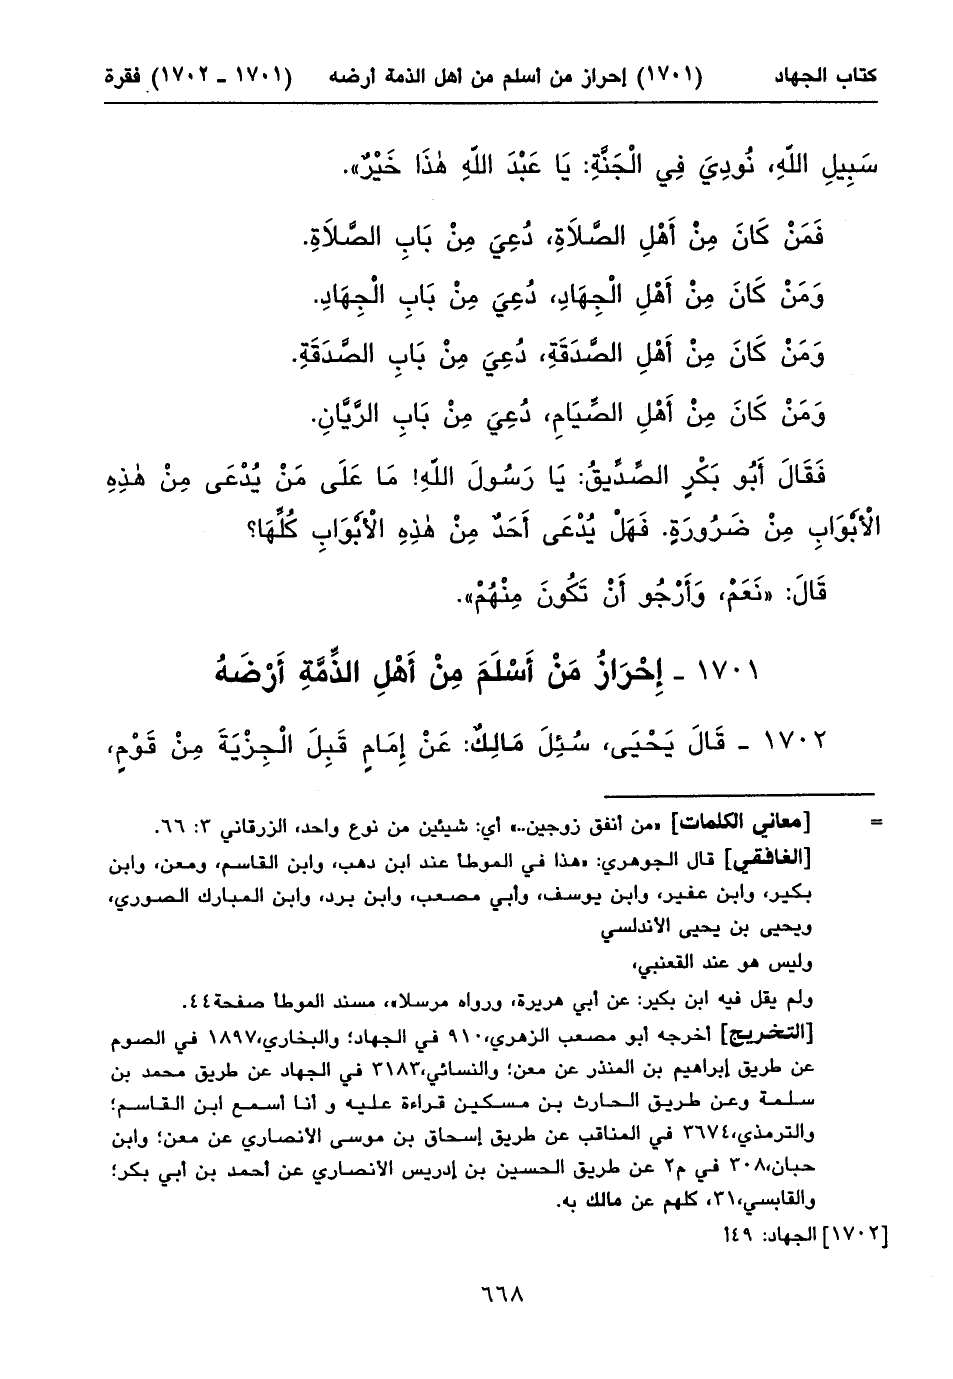 كتاب الجهاد (١٧٠١) إحراز من أسلم من أهل الذمة أرضه (١٧٠١ - ١٧٠٢) فقرة
سَبِيلِ اللّهِ، نُودِيَ فِي الْجَنَّةِ: يَا عَبْدَ اللّهِ هٰذَا خَيْرٌ».
فَمَنْ كَانَ مِنْ أَهْلِ الصَّلاَةِ، دُعِيَ مِنْ بَابِ الصَّلاَةِ.
وَمَنْ كَانَ مِنْ أَهْلِ الْجِهَادِ، دُعِيَ مِنْ بَابِ الْجِهَادِ.
وَمَنْ كَانَ مِنْ أَهْلِ الصَّدَقَةِ، دُعِيَ مِنْ بَابِ الصَّدَقَةِ.
وَمَنْ كَانَ مِنْ أَهْلِ الصِّيَامِ، دُعِيَ مِنْ بَابِ الرَّيَّانِ.
فَقَالَ أَبُو بَكْرٍ الصِّدِّيقُ: يَا رَسُولَ اللّهِ! مَا عَلَى مَنْ يُدْعَى مِنْ هٰذِهِ
الْأَبْوَابِ مِنْ ضَرُورَةٍ. فَهَلْ يُدْعَى أَحَدٌ مِنْ هٰذِهِ الْأَبْوَابِ كُلِّهَا؟
قَالَ: «نَعَمْ، وَأَرْجُو أَنْ تَكُونَ مِنْهُمْ».
١٧٠١ - إِحْرَازُ مَنْ أَسْلَمَ مِنْ أَهْلِ الذِّمَّةِ أَرْضَهُ
١٧٠٢ - قَالَ يَحْيَى، سُئِلَ مَالِكٌ: عَنْ إِمَامٍ قَبِلَ الْجِزْيَةَ مِنْ قَوْمٍ،
= [معاني الكلمات] «من أنفق زوجين..» أي: شيئين من نوع واحد، الزرقاني ٣: ٦٦.
[الغافقي] قال الجوهري: «هذا في الموطأ عند ابن وهب، وابن القاسم، ومعن، وابن
بكير، وابن عفير، وابن يوسف، وأبي مصعب، وابن برد، وابن المبارك الصوري،
ويحيى بن يحيى الأندلسي
وليس هو عند القعنبي،
ولم يقل فيه ابن بكير: عن أبي هريرة، ورواه مرسلا»، مسند الموطأ صفحة٤٤.
[التخريج] أخرجه أبو مصعب الزهري،٩١٠ في الجهاد؛ والبخاري،١٨٩٧ في الصوم
عن طريق إبراهيم بن المنذر عن معن؛ والنسائي،٣١٨٣ في الجهاد عن طريق محمد بن
سلمة وعن طريق الحارث بن مسكين قراءة عليه و أنا أسمع ابن القاسم؛
والترمذي،٣٦٧٤ في المناقب عن طريق إسحاق بن موسى الأنصاري عن معن؛ وابن
حبان،٣٠٨ في م٢ عن طريق الحسين بن إدريس الأنصاري عن أحمد بن أبي بكر؛
والقابسي،٣١، كلهم عن مالك به.
[١٧٠٢] الجهاد: ٤٩أ
٦٦٨